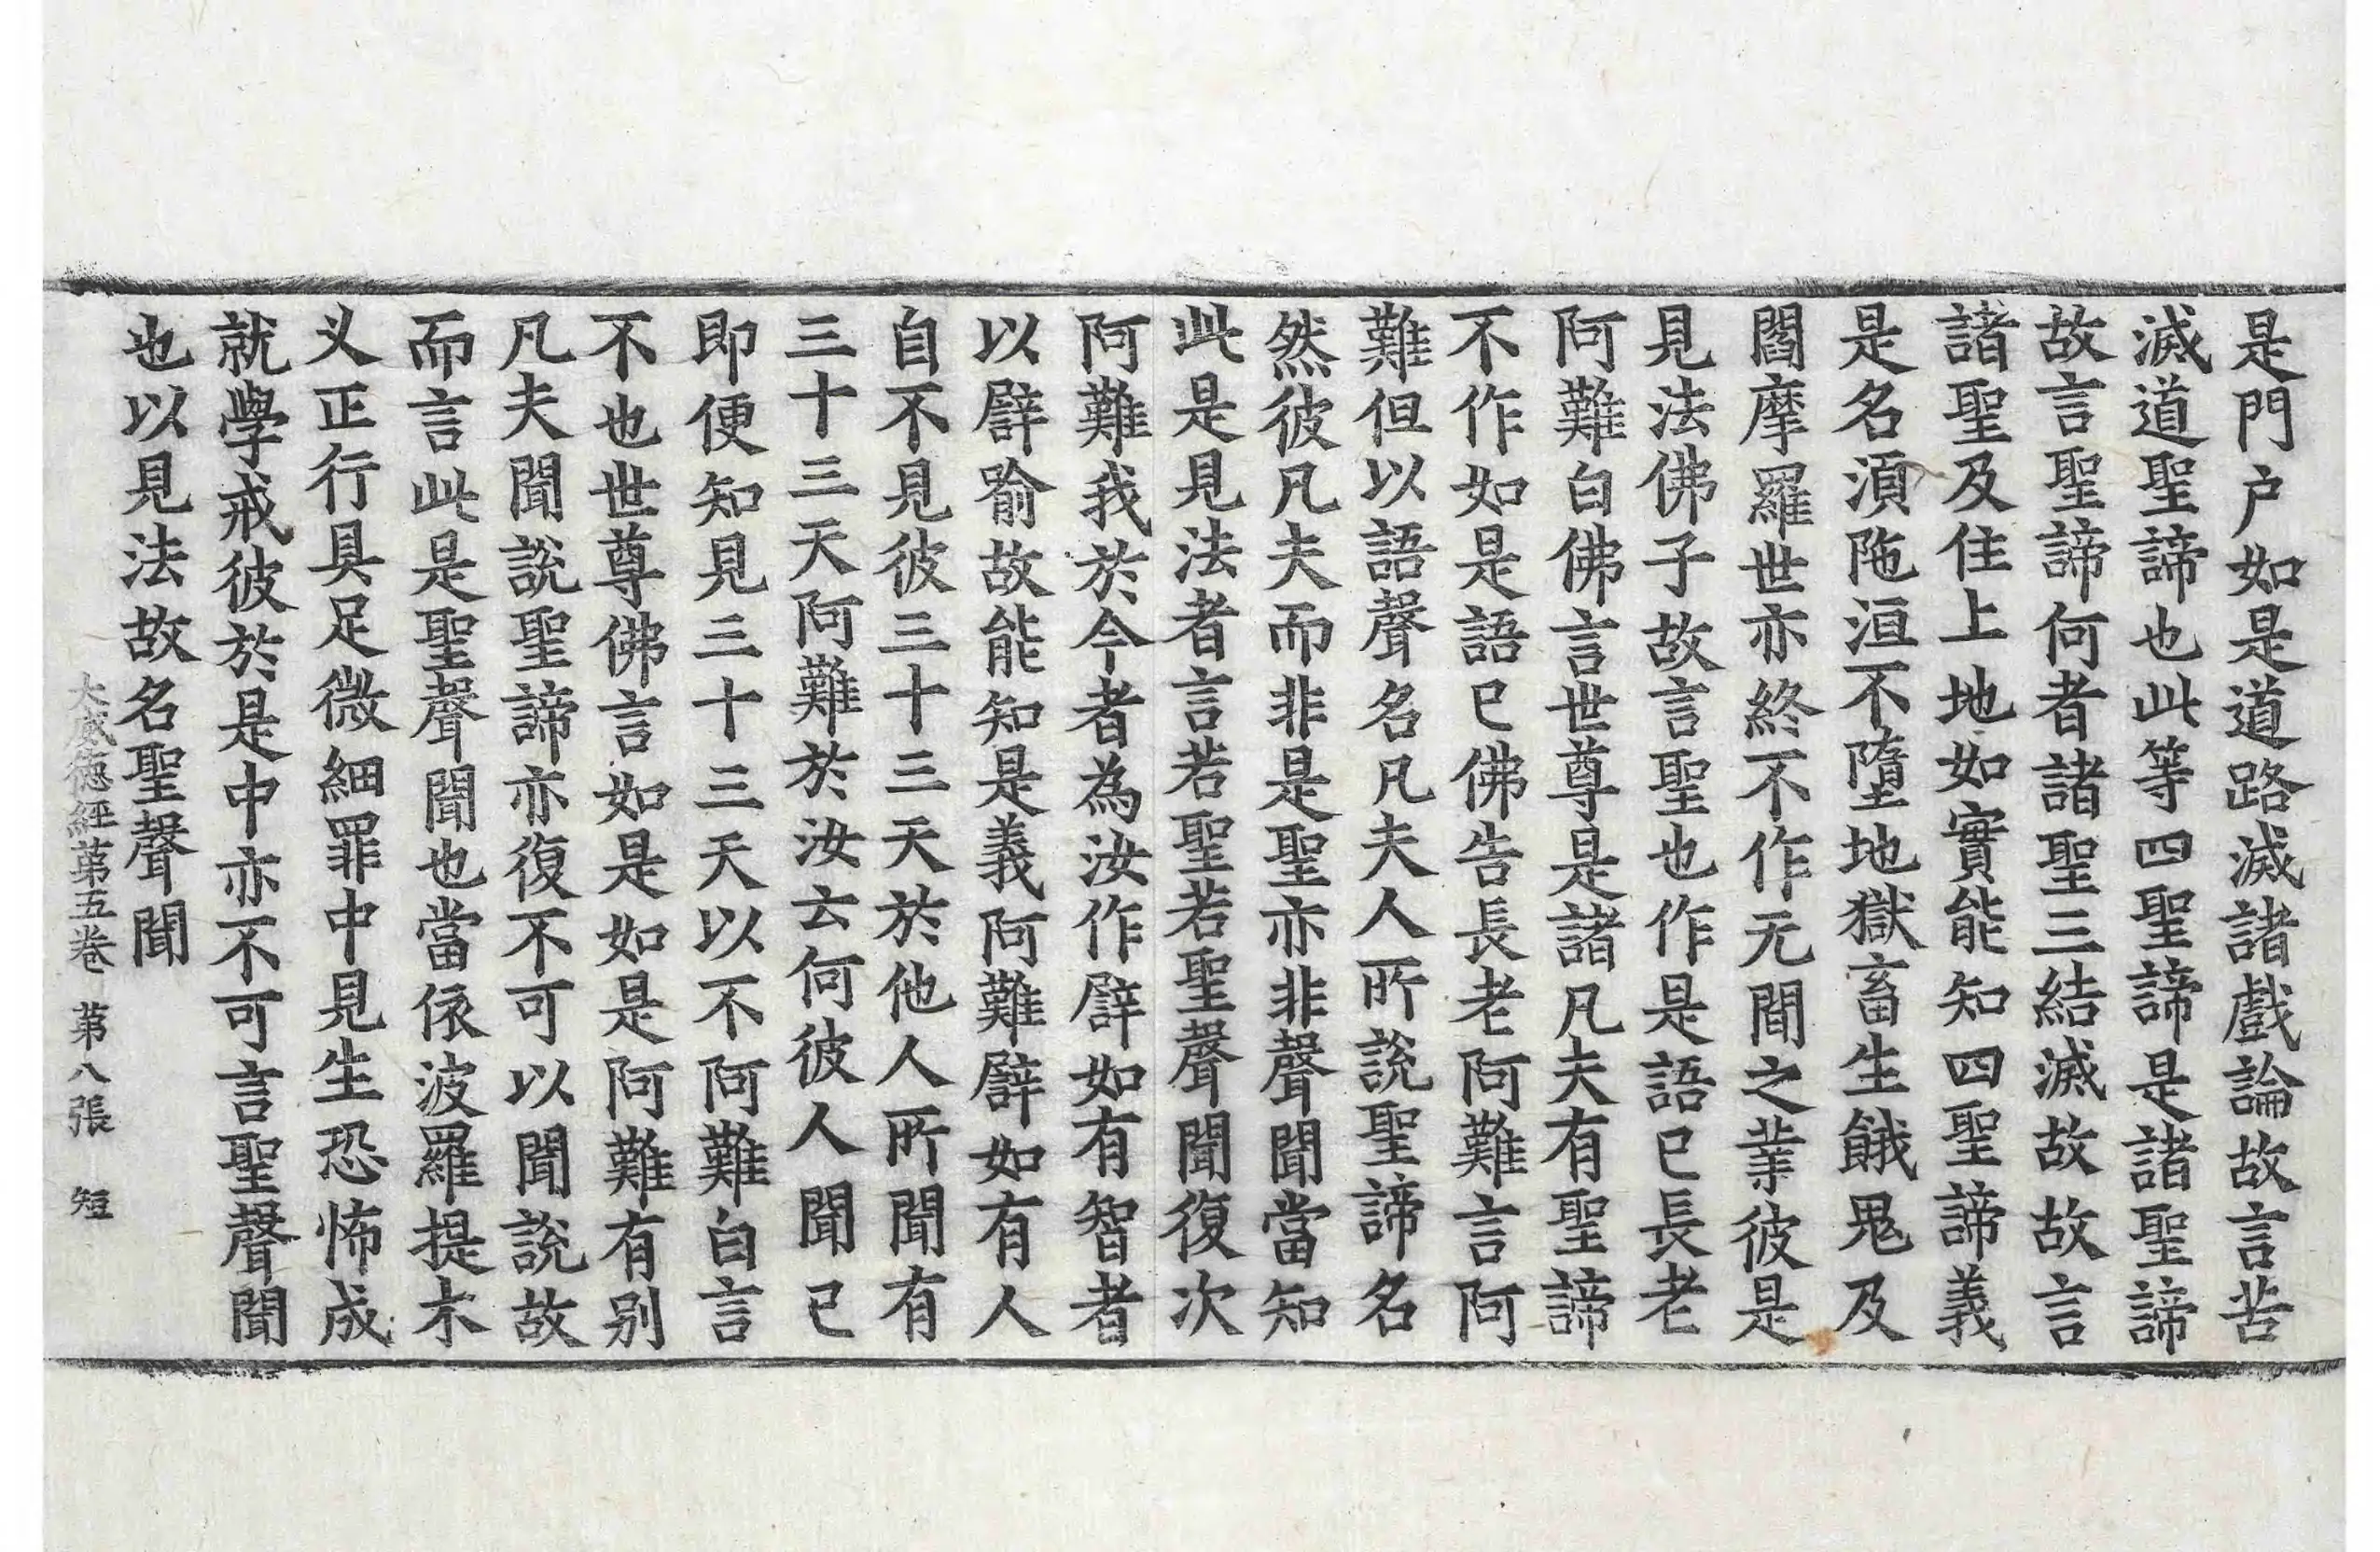 是門户如是道路滅諸戲論故言苦
滅道聖諦也此等四聖諦是諸聖諦
故言聖諦何者諸聖三結滅故故言
諸聖及住上地如實能知四聖諦義
是名湏陁洹不墮地獄畜生餓鬼及
閻摩羅世亦終不作无間之業彼是
見法佛子故言聖也作是語已長老
阿難白佛言世尊是諸凡夫有聖諦
不作如是語已佛告長老阿難言阿
難但以語聲名凡夫人所說聖諦名
然彼凡夫而非是聖亦非聲聞當知
此是見法者言若聖若聖聲聞復次
阿難我於今者為汝作譬如有智者
以譬喻故能知是義阿難譬如有人
自不見彼三十三天於他人所聞有
三十三天阿難於汝云何彼人聞已
即便知見三十三天以不阿難白言
不也世尊佛言如是如是阿難有别
凡夫聞說聖諦亦復不可以聞說故
而言此是聖聲聞也當依波羅提木
叉正行具足微細罪中見生恐怖成
就學戒彼於是中亦不可言聖聲聞
也以見法故名聖聲聞
大威德經第五卷 第八張 短